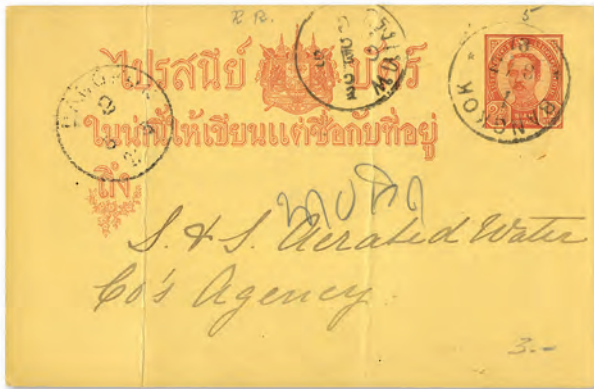 R R. 5
ไปรสนีย์ บัตร์
ในน่านี้ให้เขียนแต่ชื่อกับที่อยู่
ถึง
BANGKOK
S. & S. Aerated Water
Co's Agency.
3.-